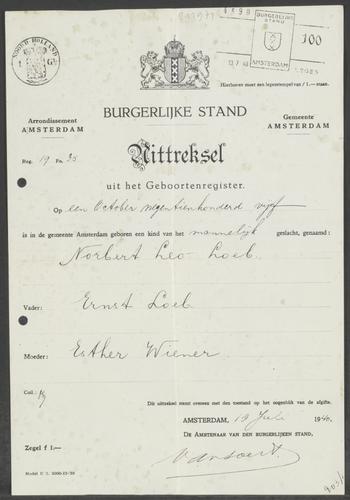 NOORD-HOLLAND
1 G
BURGERLIJKE
STAND
AMSTERDAM
100
Hierboven moet een legesstempel van f 1.— staan.
BURGERLIJKE STAND
Arrondissement
AMSTERDAM
Gemeente
AMSTERDAM
Reg. 19 Fo. 35
Uittreksel
uit het Geboortenregister.
Op een October negentienhonderd vijf
is in de gemeente Amsterdam geboren een kind van het mannelijk geslacht, genaamd:
Norbert Leo Loeb.
Vader:
Ernst Loeb
Moeder:
Esther Wiener
Coll.:
Dit uittreksel stemt overeen met den toestand op het oogenblik van de afgifte.
AMSTERDAM, 19 Juli 1940.
DE AMBTENAAR VAN DEN BURGERLIJKEN STAND,
Zegel f 1.—